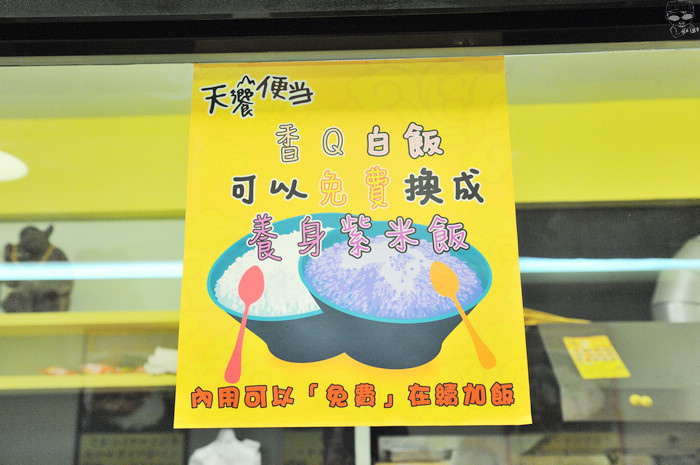 天饗便当
香Q白飯
可以免費換成
養身紫米飯
內用可以「免費」在續加飯